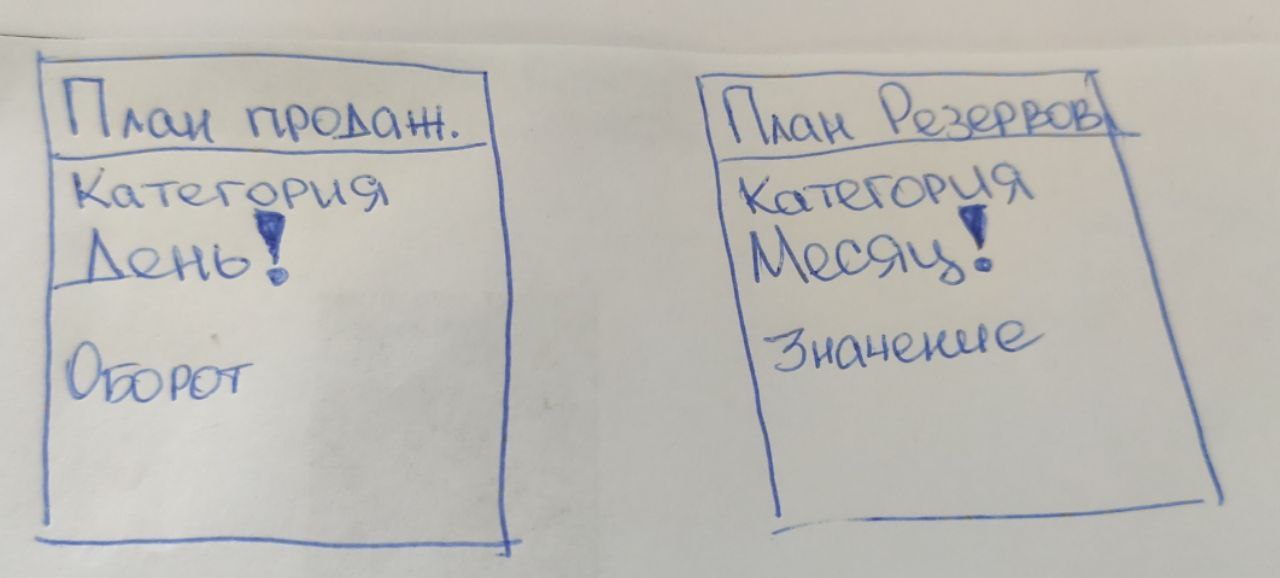 План продаж.
Категория
День!
Оборот
План Резервов
Категория
Месяц!
Значение